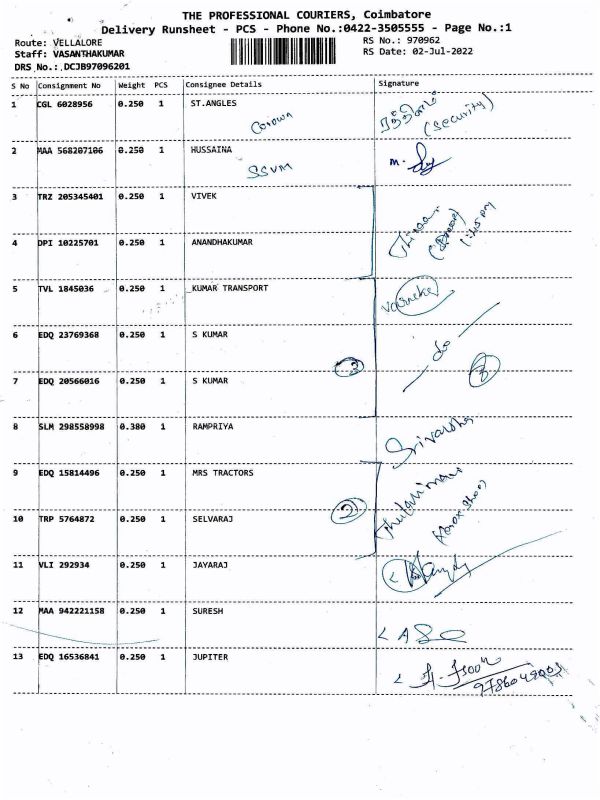 THE PROFESSIONAL COURIERS, Coimbatore
Delivery Runsheet - PCS - Phone No.:0422-3505555 - Page No.:1
Route: VELLALORE
RS No.: 970962
Staff: VASANTHAKUMAR
RS Date: 02-Jul-2022
DRS No.: DCJB97096201
S No Consignment No Weight PCS Consignee Details Signature
1 CGL 6028956 0.250 1 ST.ANGLES
Corown (Security)
2 MAA 568207106 0.250 1 HUSSAINA
SSVM M.
3 TRZ 205345401 0.250 1 VIVEK
1:45 PM
4 DPI 10225701 0.250 1 ANANDHAKUMAR
5 TVL 1845036 0.250 1 KUMAR TRANSPORT
6 EDQ 23769368 0.250 1 S KUMAR
do
7 EDQ 20566016 0.250 1 S KUMAR
8 SLM 298558998 0.380 1 RAMPRIYA
Srivardha
9 EDQ 15814496 0.250 1 MRS TRACTORS
2
10 TRP 5764872 0.250 1 SELVARAJ
11 VLI 292934 0.250 1 JAYARAJ
12 MAA 942221158 0.250 1 SURESH
13 EDQ 16536841 0.250 1 JUPITER